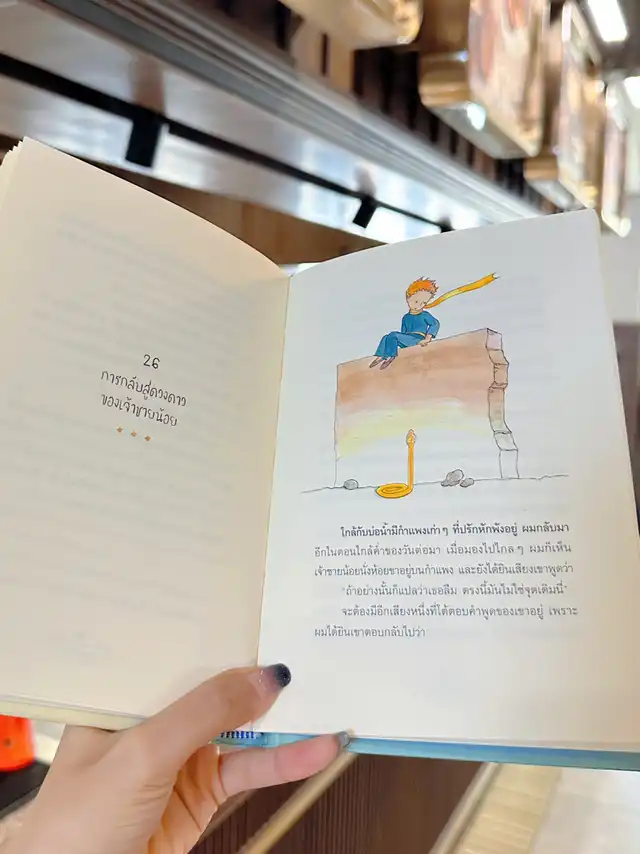 26
การกลับสู่ดวงดาว
ของเจ้าชายน้อย
ใกล้กับบ่อน้ำมีกำแพงเก่าๆ ที่ปรักหักพังอยู่ ผมกลับมา
อีกในตอนใกล้ค่ำของวันต่อมา เมื่อมองไปไกลๆ ผมก็เห็น
เจ้าชายน้อยนั่งห้อยขาอยู่บนกำแพง และยังได้ยินเสียงเขาพูดว่า
"ถ้าอย่างนั้นก็แปลว่าเธอลืม ตรงนี้มันไม่ใช่จุดเดิมนี่"
จะต้องมีอีกเสียงหนึ่งที่โต้ตอบคำพูดของเขาอยู่ เพราะ
ผมได้ยินเขาตอบกลับไปว่า